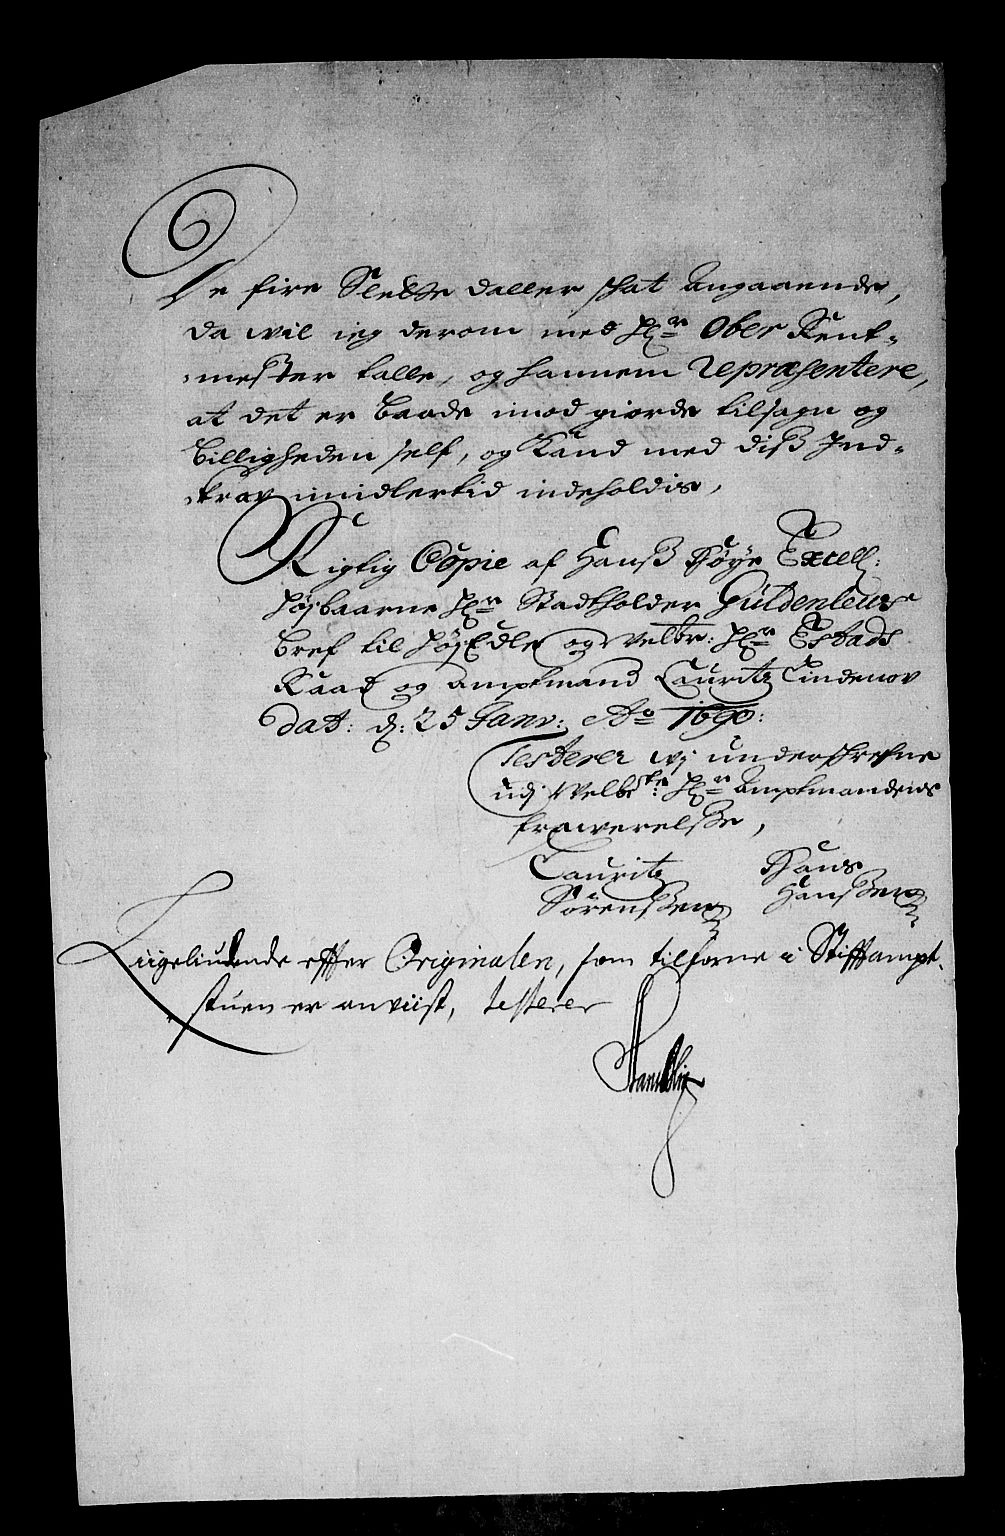 De fire Slette daller schat Angaaende,
da wil ieg derom med Hr Ober Rent-
mester talle, og hannem Repræsentere,
at det er baade imod giorde tilsagn og
billigheden self, og Kand med diß Ind-
krav imidlertid indeholdis,
Rigtig Copie af Hanß Høye Excell:
Højbaarne Hr Stadtholder Güldenlews
bref til HøjEdle og Velbr: Hr Estads
Raad og Amptmand Lauritz Lindenov
dat: d: 25 Janv: Ao 1690:
Testerer wj underskrefne
udj Welbte: Hr Amptmandens
frawerelße,
Lauritz Hans
Sörenßen Hanßen
Liigeliudende effter Originalen, som tilforne i Stifftampt-
stuen er anviist, testerer